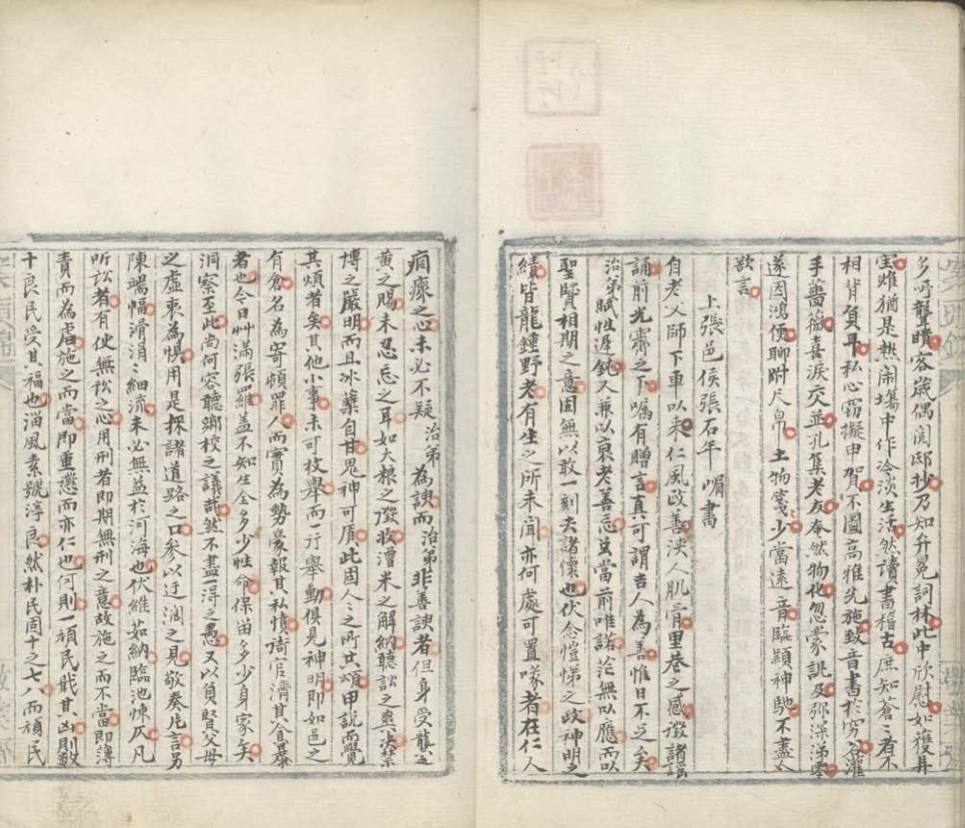 多時聾聵客歲偶聞邸抄乃知升冕詞林此中欣慰如獲再
生雖猶是熱鬧場中作冷淡生活然讀書稽古庶知蒼々者不
相背負耳私心竊擬申賀不圖高雅先施致音書於窮谷灌
手薔薇喜淚交並孔集老友奄然物化忽蒙詢及彌深涕零
遂因鴻便聊附尺帛土物戔少當遠音臨穎神馳不盡
欲言
上張邑侯張石年嵋書
自老父師下車以來仁風政善浹人肌膏里巷之感激諸謠
誦前光霽之下囑有贈言真可謂吉人為善惟日不足矣
治弟賦性遲鈍人兼以衰老善忘茲當前唯諾茫無以應而以
聖賢相期之意固無以敢一刻去諸懷也伏念愷悌之政神明之
績皆龍鍾野老有生之所未聞亦何處可置喙者在仁人
痌瘝之心未必不疑治弟為諛而治弟非善諛者但身受龔
黃之賜未忍忘之耳如大粮之徵收漕米之解納聽訟之
博之嚴明而且冰蘖自甘鬼神可質此固人之所共頌申說而覺
其煩者矣其他小事未可枚舉而一行舉動俱見神明即如邑之
有倉名為寄頓罪人而實為勢豪報其私憤衙官濟其貪
者也今日艸滿張羅蓋不知生全多少性命保留多少身家矣
洞察至此尚何容聽鄉校之議哉然不盡一得之愚又以負賢父母
之虛衷為懼用是採諸道路之口參以迂濶之見敬奏巵言另
陳端幅涓涓々細流未必無益於河海也伏維茹納臨池悚仄凡
聽訟者有使無訟之心用刑者即期無刑之意故施之而不當即薄
責而為虐施之而當即重懲而亦仁也何則一頑民戢其凶則數
十良民受其福也淄風素號淳良然朴民固十之七八而頑民